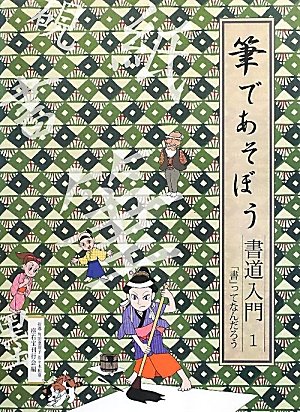 筆であそぼう
書道入門 1
「書」ってなんだろう
紙
筆
硯
墨